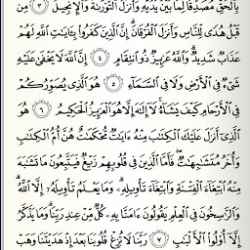 بِالْحَقِّ مُصَدِّقًا لِّمَا بَيْنَ يَدَيْهِ وَأَنزَلَ التَّوْرَىٰةَ وَالْإِنجِيلَ ٣ مِن
قَبْلُ هُدًى لِّلنَّاسِ وَأَنزَلَ الْفُرْقَانَ ۗ إِنَّ الَّذِينَ كَفَرُوا بِـَٔايَـٰتِ اللَّهِ لَهُمْ
عَذَابٌ شَدِيدٌ ۗ وَاللَّهُ عَزِيزٌ ذُو انتِقَامٍ ٤ إِنَّ اللَّهَ لَا يَخْفَىٰ عَلَيْهِ
شَىْءٌ فِى الْأَرْضِ وَلَا فِى السَّمَآءِ ٥ هُوَ الَّذِى يُصَوِّرُكُمْ
فِى الْأَرْحَامِ كَيْفَ يَشَآءُ ۚ لَآ إِلَـٰهَ إِلَّا هُوَ الْعَزِيزُ الْحَكِيمُ ٦ هُوَ
الَّذِىٓ أَنزَلَ عَلَيْكَ الْكِتَـٰبَ مِنْهُ ءَايَـٰتٌ مُّحْكَمَـٰتٌ هُنَّ أُمُّ الْكِتَـٰبِ
وَأُخَرُ مُتَشَـٰبِهَـٰتٌ ۖ فَأَمَّا الَّذِينَ فِى قُلُوبِهِمْ زَيْغٌ فَيَتَّبِعُونَ مَا تَشَـٰبَهَ
مِنْهُ ابْتِغَآءَ الْفِتْنَةِ وَابْتِغَآءَ تَأْوِيلِهِۦ ۗ وَمَا يَعْلَمُ تَأْوِيلَهُۥٓ إِلَّا اللَّهُ ۗ
وَالرَّٰسِخُونَ فِى الْعِلْمِ يَقُولُونَ ءَامَنَّا بِهِۦ كُلٌّ مِّنْ عِندِ رَبِّنَا ۗ وَمَا يَذَّكَّرُ
إِلَّآ أُو۟لُوا الْأَلْبَـٰبِ ٧ رَبَّنَا لَا تُزِغْ قُلُوبَنَا بَعْدَ إِذْ هَدَيْتَنَا وَهَبْ